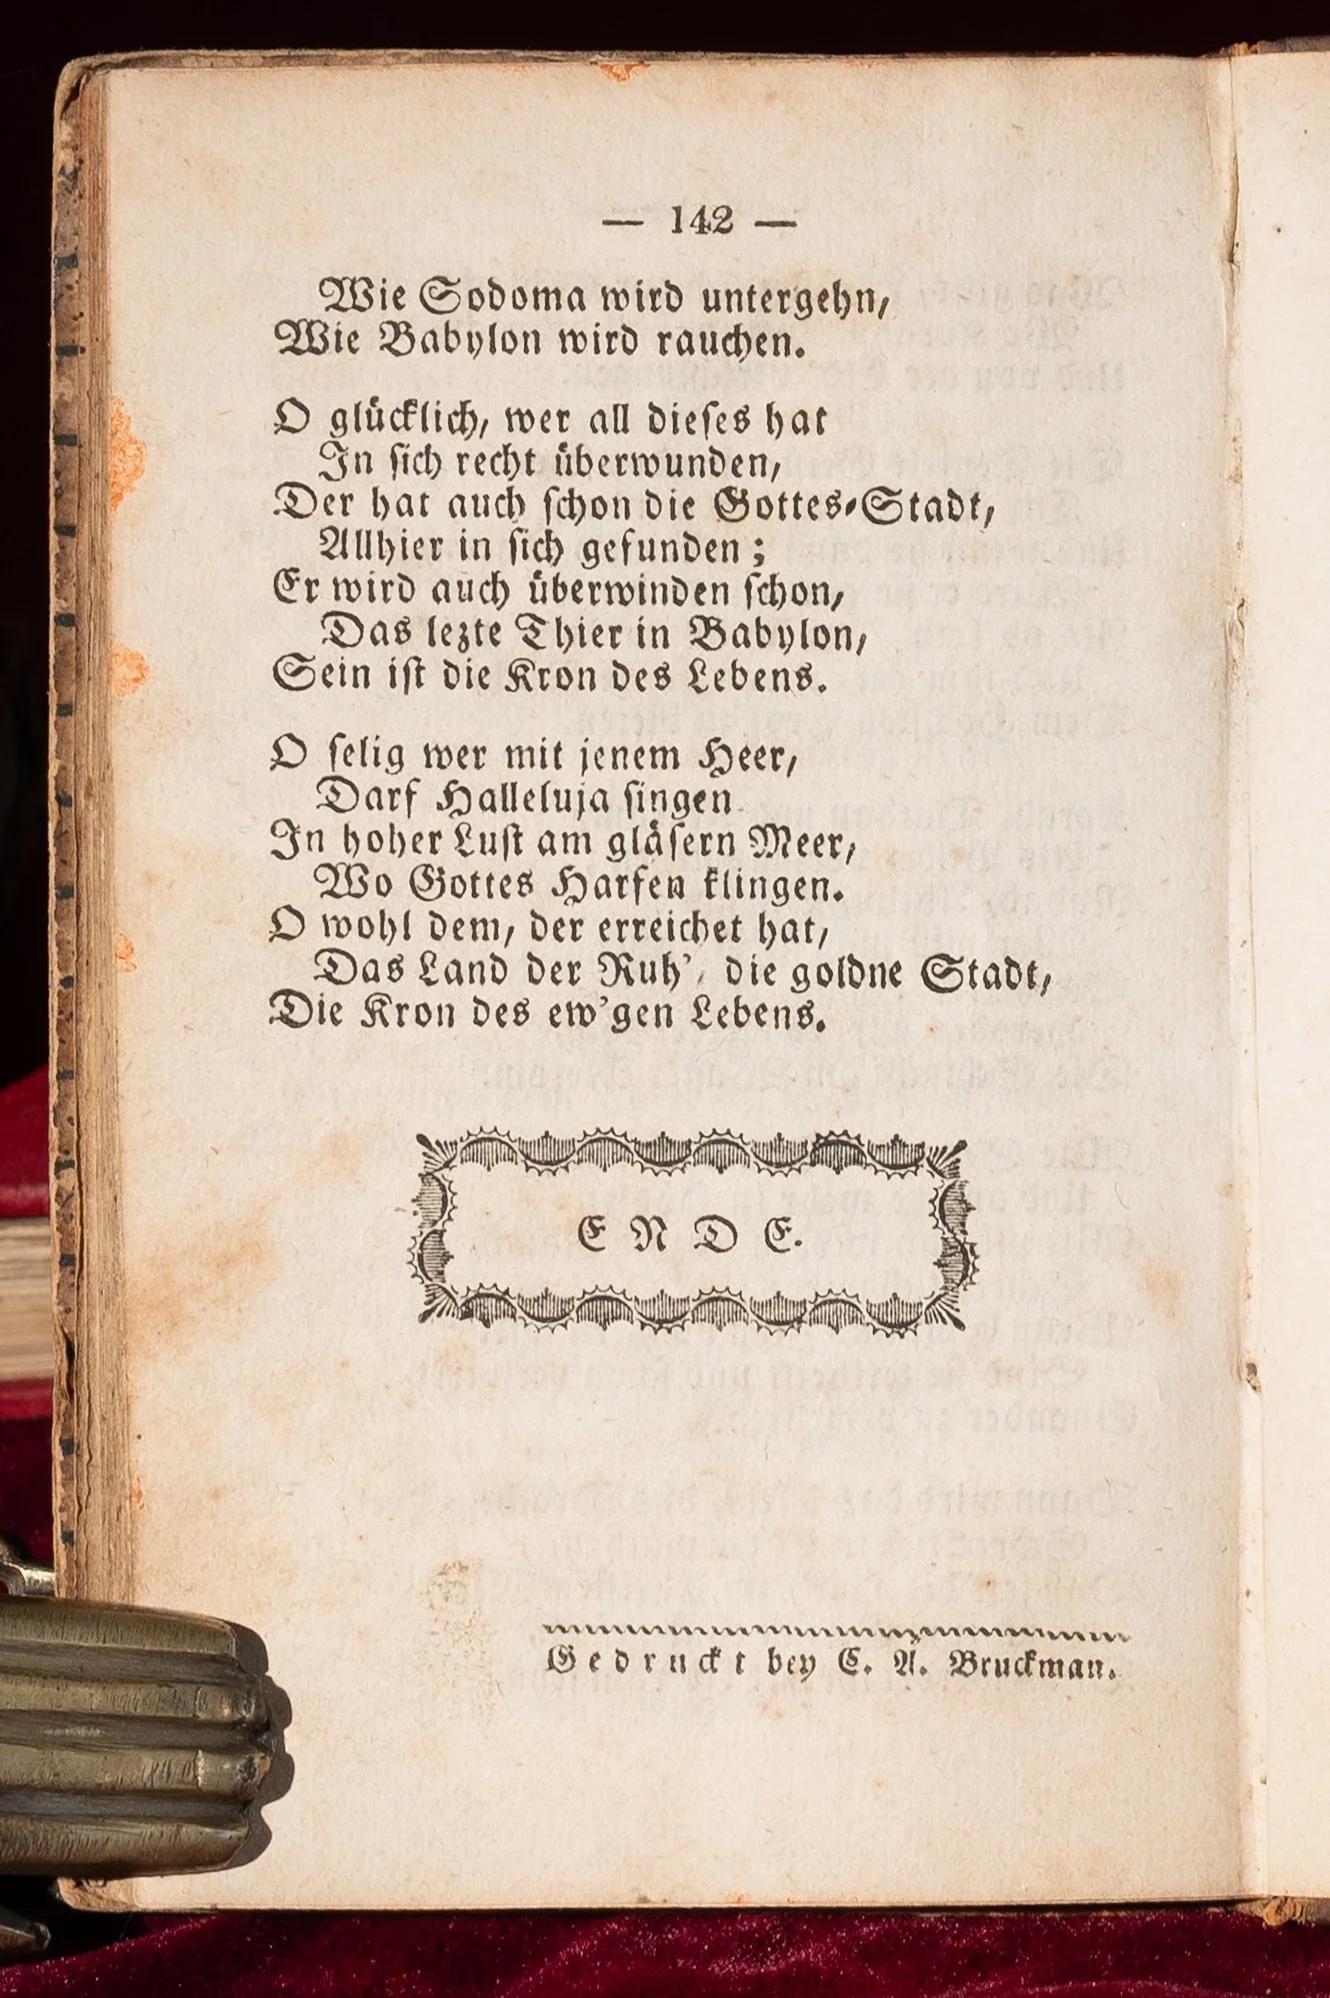 — 142 —
Wie Sodoma wird untergehn,
Wie Babylon wird rauchen.
O glücklich, wer all dieſes hat
In ſich recht überwunden,
Der hat auch ſchon die Gottes-Stadt,
Allhier in ſich gefunden;
Er wird auch überwinden ſchon,
Das lezte Thier in Babylon,
Sein iſt die Kron des Lebens.
O ſelig wer mit jenem Heer,
Darf Halleluja ſingen
In hoher Luſt am gläſern Meer,
Wo Gottes Harfen klingen.
O wohl dem, der erreichet hat,
Das Land der Ruh', die goldne Stadt,
Die Kron des ew'gen Lebens.
ENDE.
Gedruckt bey C. A. Bruckman.